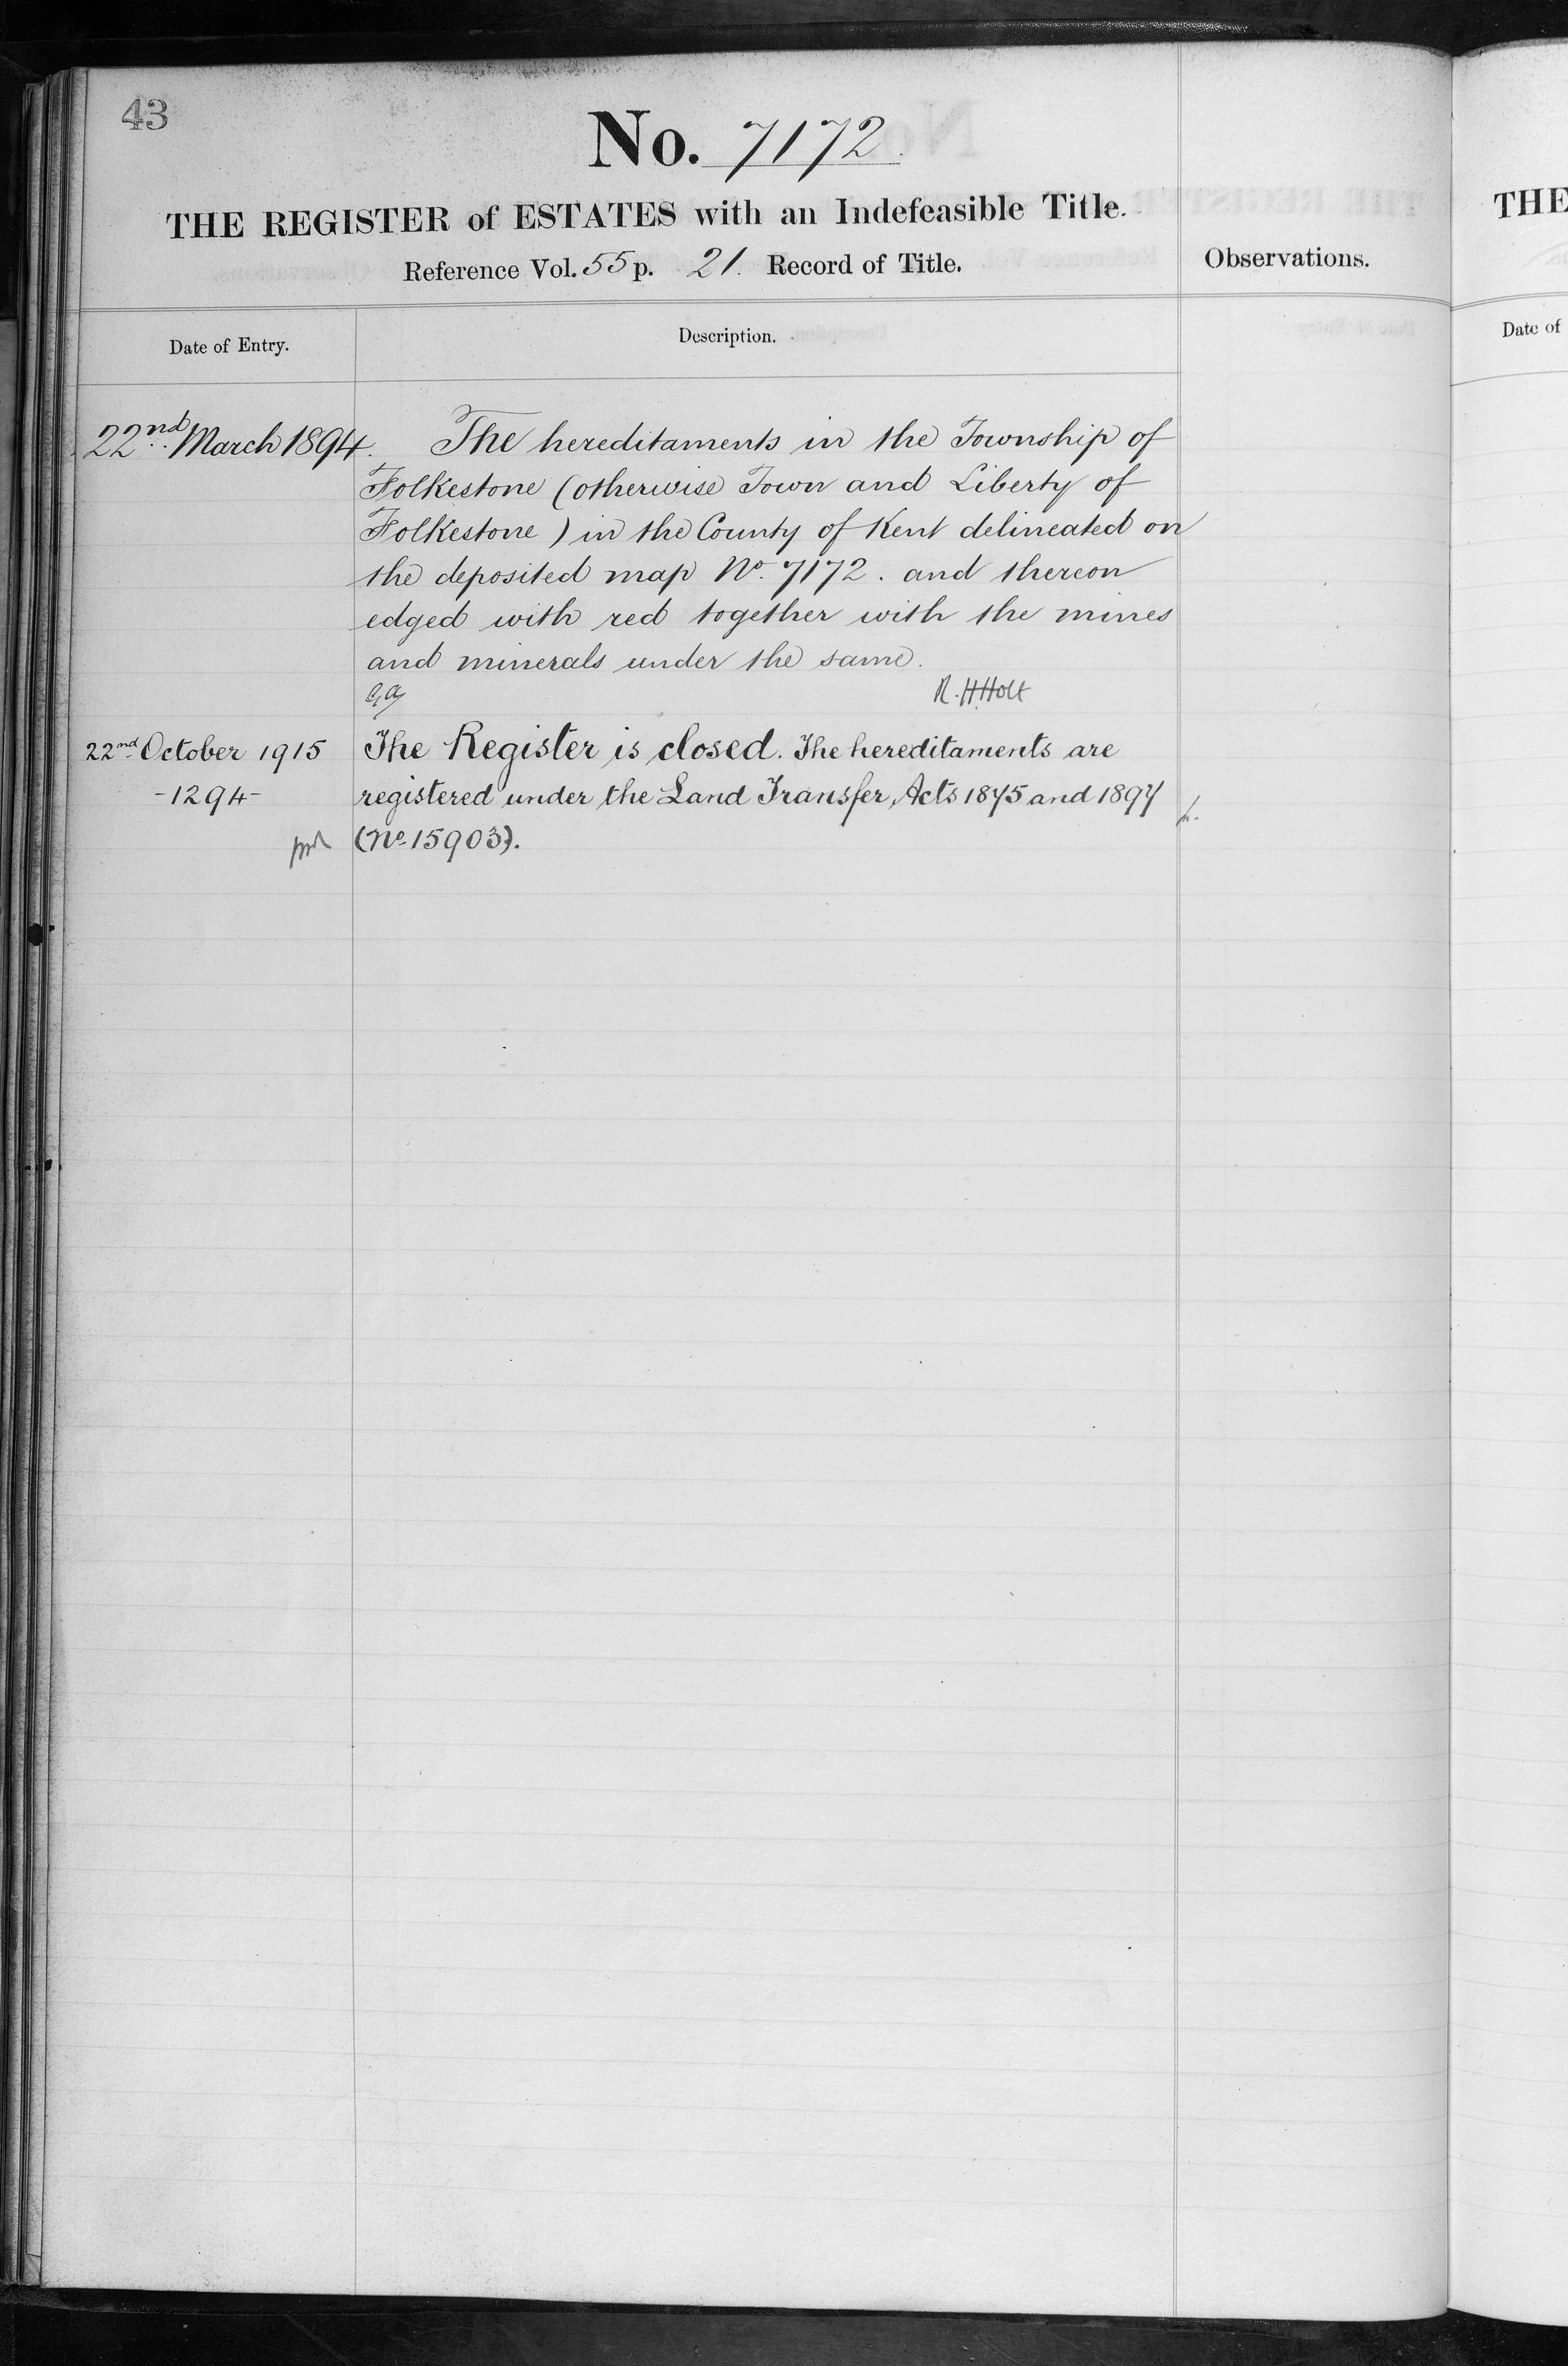 43
No. 7172.
THE REGISTER of ESTATES with an Indefeasible Title.
Reference Vol. 55 p. 21. Record of Title.
Observations.
Date of Entry.
Description.
22nd March 1894.
The hereditaments in the Township of
Folkestone (otherwise Town and Liberty of
Folkestone) in the County of Kent delineated on
the deposited map No. 7172. and thereon
edged with red together with the mines
and minerals under the same.
R. H. Holt
22nd October 1915
-1294-
The Register is closed. The hereditaments are
registered under the Land Transfer Acts 1875 and 1897
(No. 15903).
THE
Date of